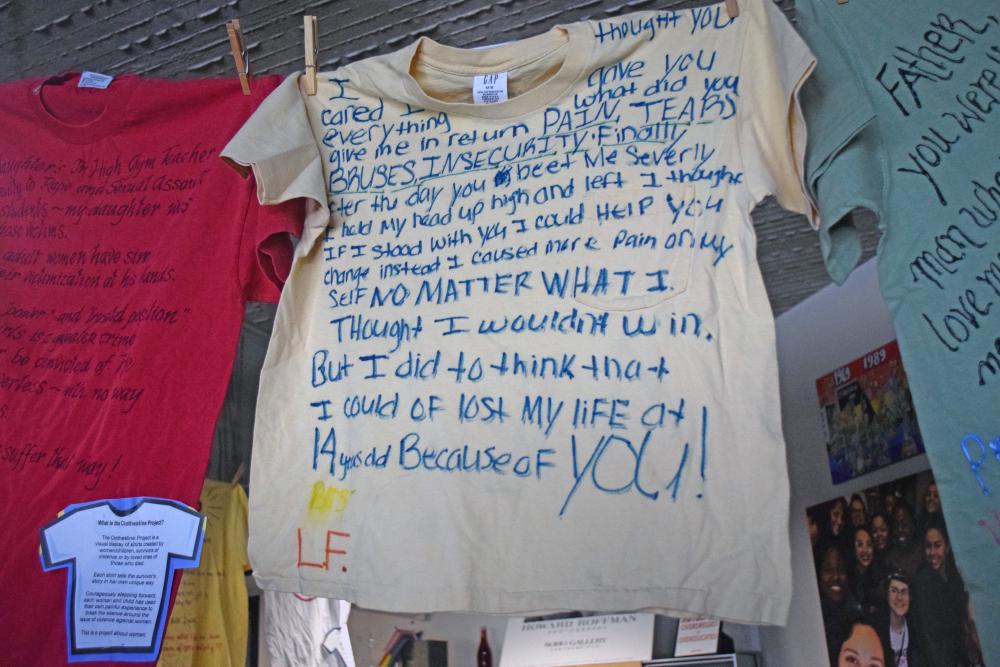 thought you
I gave you
cared I what did you
everything
give me in return PAIN, TEARS
BRUSES, INSECURITY. Finally
fter the day you beet Me Severly
I hold My head up high and left I thought
IF I Stood with you I could HELP YOU
change instead I caused more Pain on My
Self NO MATTER WHAT I.
Thought I wouldnt win.
But I did to think that
I could OF lost MY liFE at
14 years old Because oF YOU!
L.F.
GAP
aughter's Jr. High Gym Teacher
to Rape and Sexual Assau
students ~ my daughter was
those victims.
adult women have
victimization at his hands.
"power" and "
is a crime
be convicted of
erless ~ with no way
suffer that way!
What is the Clothesline Project?
The Clothesline Project is a
visual display of shirts created by
women/children, survivors of
violence or by loved ones of
those who died.
Each shirt tells the survivor's
story in her own unique way.
Courageously stepping forward
each woman and child has used
their own painful experience to
break the silence around the
issue of violence against women.
This is a project about women.
FATHER,
you were
man who
love m
HOWARD HOFFMAN
PHOTOGRAPHY
SOHO GALLERY
1969 1989